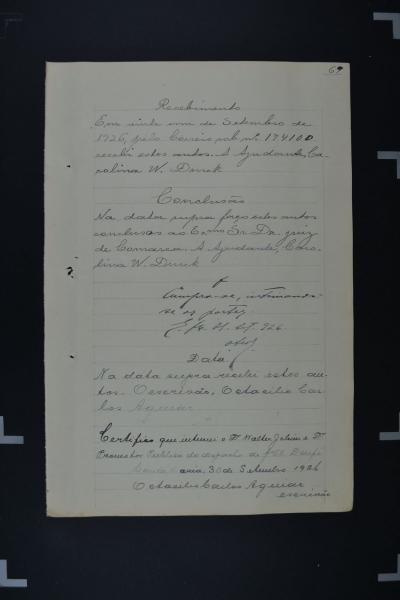 69
Recebimento
Em vinte um de Setembro de
1926, pelo Correio sob nº. 174100
recebi estes autos. A Ajudante, Ca-
rolina W. Durek
Conclusão
Na data supra faço estes autos
conclusos ao Exmo Sr. Dr. juiz
de Comarca. A Ajudante, Caro-
lina W. Durek
Cumpra-se, intimando-
se as partes
926
Data
Na data supra recebi estes au-
tos. O escrivão, Octacilio Car-
los Aguiar
Certifico que intimei o Dr. Walter e Dr.
Promotor Publico do despacho de
30 de Setembro 1926
Octacilio Carlos Aguiar
escrivão